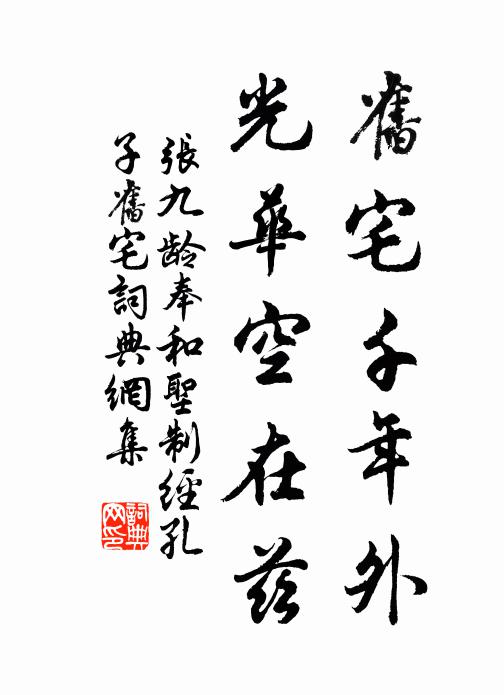 舊宅千年外
光華空在茲
張九齡奉和聖制經孔
子舊宅詞典網集
詞典
网印